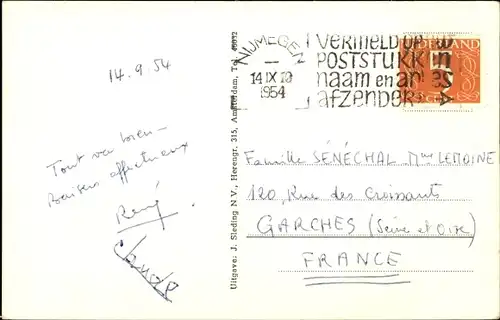 14.9.54
Tout va bien -
Baisers affectueux
René
Uitgave: J. Sleding N.V., Herengr. 315, Amsterdam, Tel.
NIJMEGEN
14 IX 18
1954
VERMELD OP
POSTSTUKKEN
naam en adres
afzender
NEDERLAND
Famille SÉNÉCHAL - Mme LEMOINE
120, Rue des Croissants
GARCHES (Seine et Oise)
FRANCE